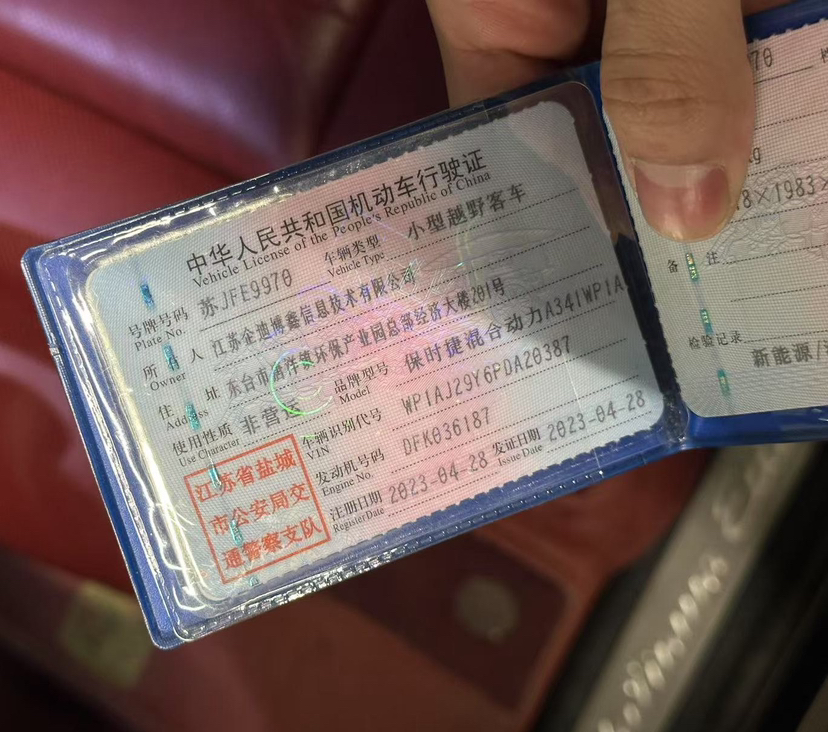 中华人民共和国机动车行驶证
Vehicle License of the People's Republic of China
号牌号码 苏JFE9970 车辆类型 小型越野客车
Plate No. Vehicle Type
所有人 江苏金迪博鑫信息技术有限公司
Owner
住址 东台市 环保产业园总部经济大楼201号
Address
使用性质 非营运 品牌型号 保时捷混合动力A34IWP1A
Use Character Model
车辆识别代号 WP1AJ29Y6PDA20387
VIN
发动机号码 DFK036187
Engine No.
注册日期 2023-04-28 发证日期 2023-04-28
Register Date Issue Date
江苏省盐城
市公安局交
通警察支队
70
8×1983×
备注
检验记录
新能源/